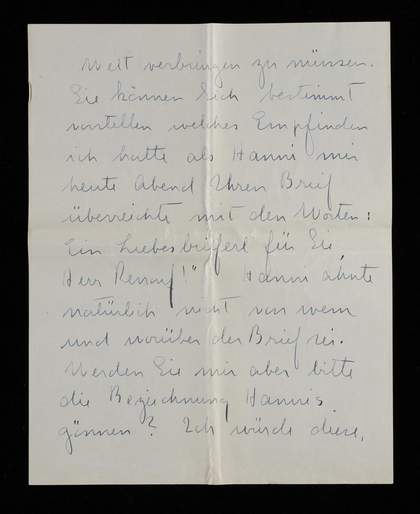 Welt verbringen zu müssen.
Sie können Sich bestimmt
vorstellen welches Empfinden
ich hatte als Hanni mir
heute Abend Ihren Brief
überreichte mit den Worten:
"Ein Liebesbrieferl für Sie,
Herr Renouf!" Hanni ahnte
natürlich nicht von wem
und worüber der Brief sei.
Werden Sie mir aber bitte
die Bezeichnung Hannis
gönnen? Ich würde diese,